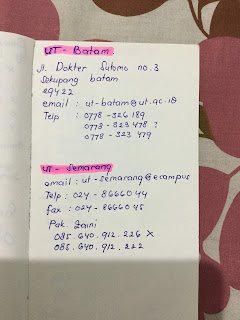 UT - Batam
Jl. Dokter Sutomo no. 3
Sekupang batam
29422
email : ut-batam@ut.ac.id
Telp : 0778 - 326 189
0778 - 323 478 ?
0778 - 323 479
UT - Semarang
email : ut-semarang@ecampus
Telp : 024 - 8666044
fax : 024 - 8666045
Pak Zaini
085.640.912.226 X
085.640.912.222